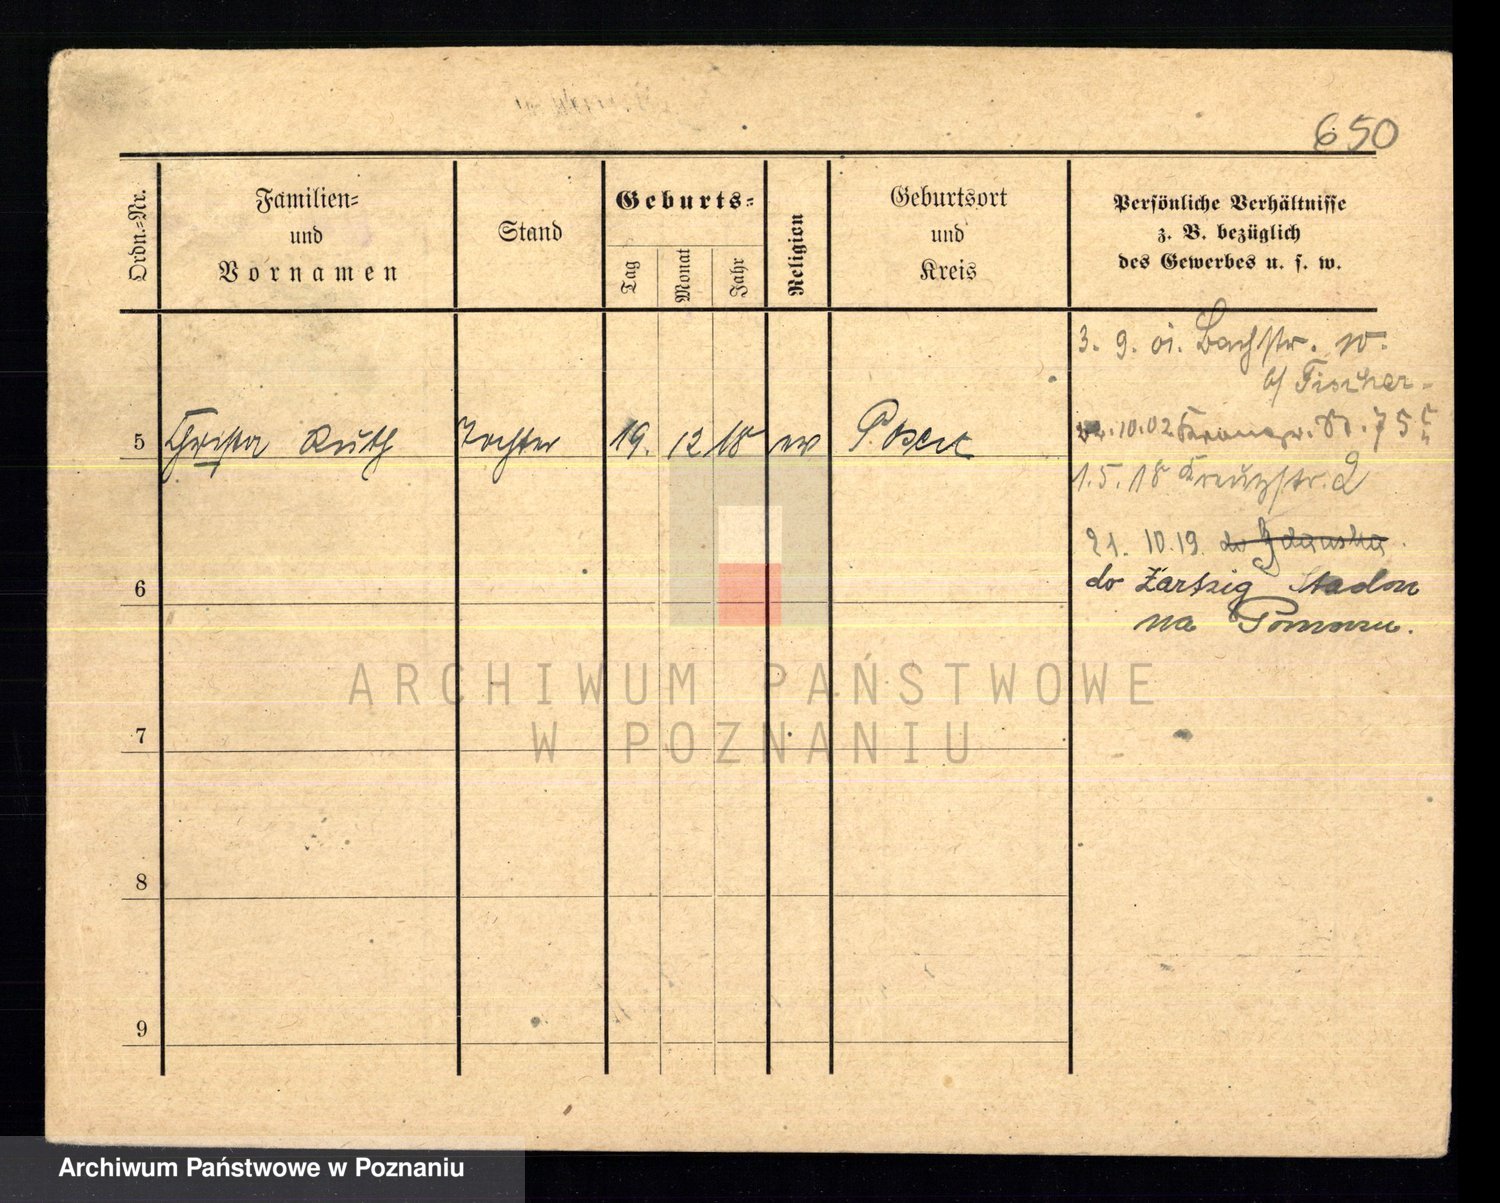 650
Ordn.-Nr.
Familien-
und
Vornamen
Stand
Geburts-
Tag
Monat
Jahr
Religion
Geburtsort
und
Kreis
Persönliche Verhältnisse
z. B. bezüglich
des Gewerbes u. s. w.
3. 9. 01. Bachstr. 10.
b/ Fischer
5 Christa Ruth Tochter 19. 12 18 ev Posen
10.02 75
1.5.18 Kreuzstr. 2
21. 10.19. do Gdańska
6
do Zartzig
na Pomorzu.
7
8
9
ARCHIWUM PAŃSTWOWE
W POZNANIU
Archiwum Państwowe w Poznaniu